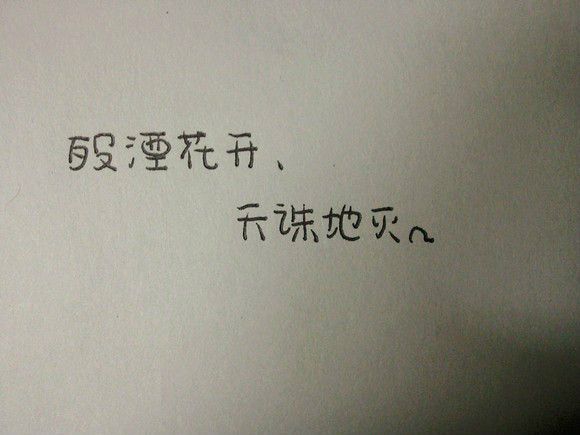 殷湮花开、
天诛地灭~